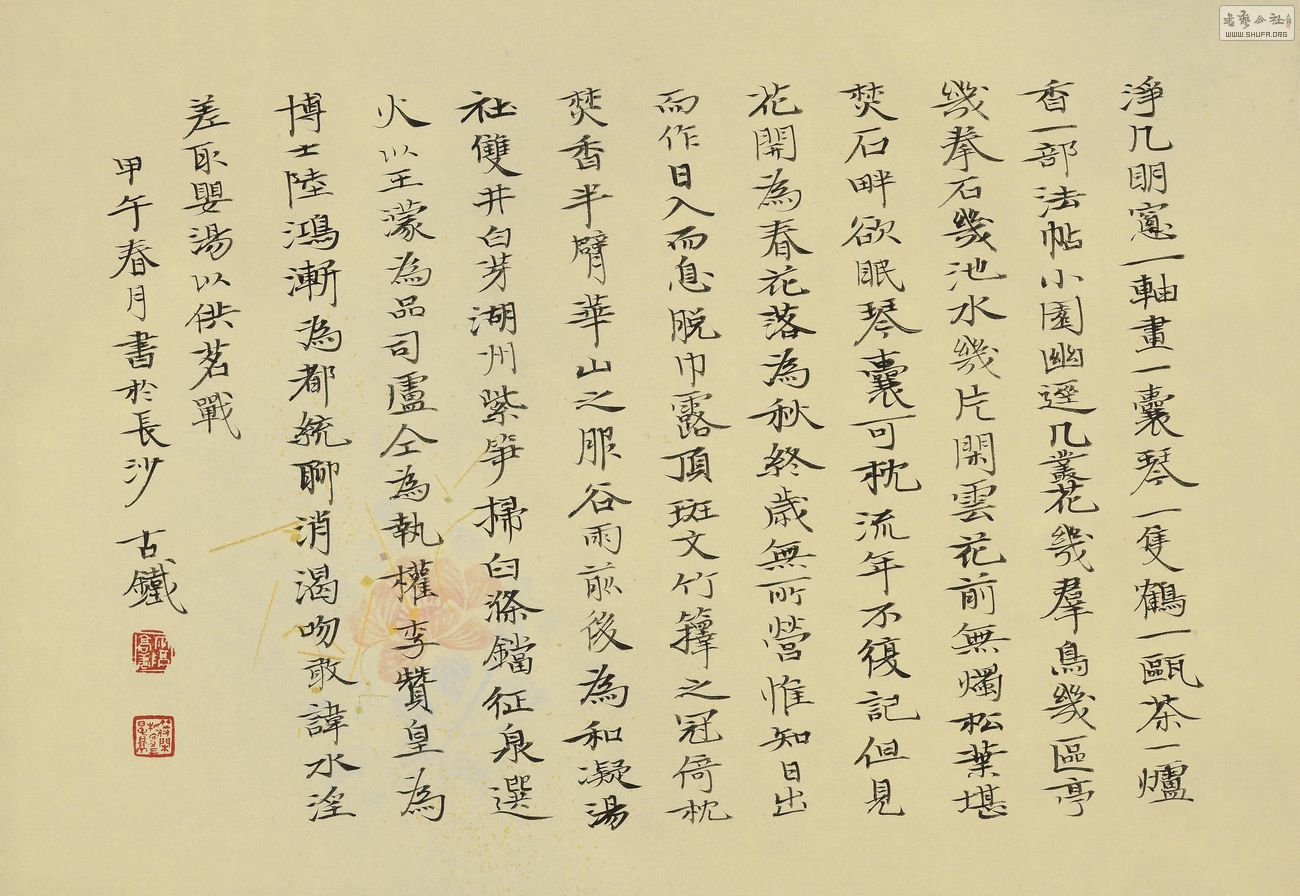 淨几明窻一軸畫一囊琴一隻鶴一甌茶一爐
香一部法帖小園幽逕几叢花幾羣鳥幾區亭
幾拳石幾池水幾片閑雲花前無燭松葉堪
焚石畔欲眠琴囊可枕流年不復記但見
花開為春花落為秋終歲無所營惟知日出
而作日入而息脫巾露頂斑文竹籜之冠倚枕
焚香半臂華山之服谷雨前後為和凝湯
社雙井白芽湖州紫笋掃臼滌鐺征泉選
火以王濛為品司盧仝為執權李贊皇為
博士陸鴻漸為都統聊消渴吻敢諱水淫
差取嬰湯以供茗戰
甲午春月書於長沙 古鐵
書藝公社
WWW.SHUFA.ORG